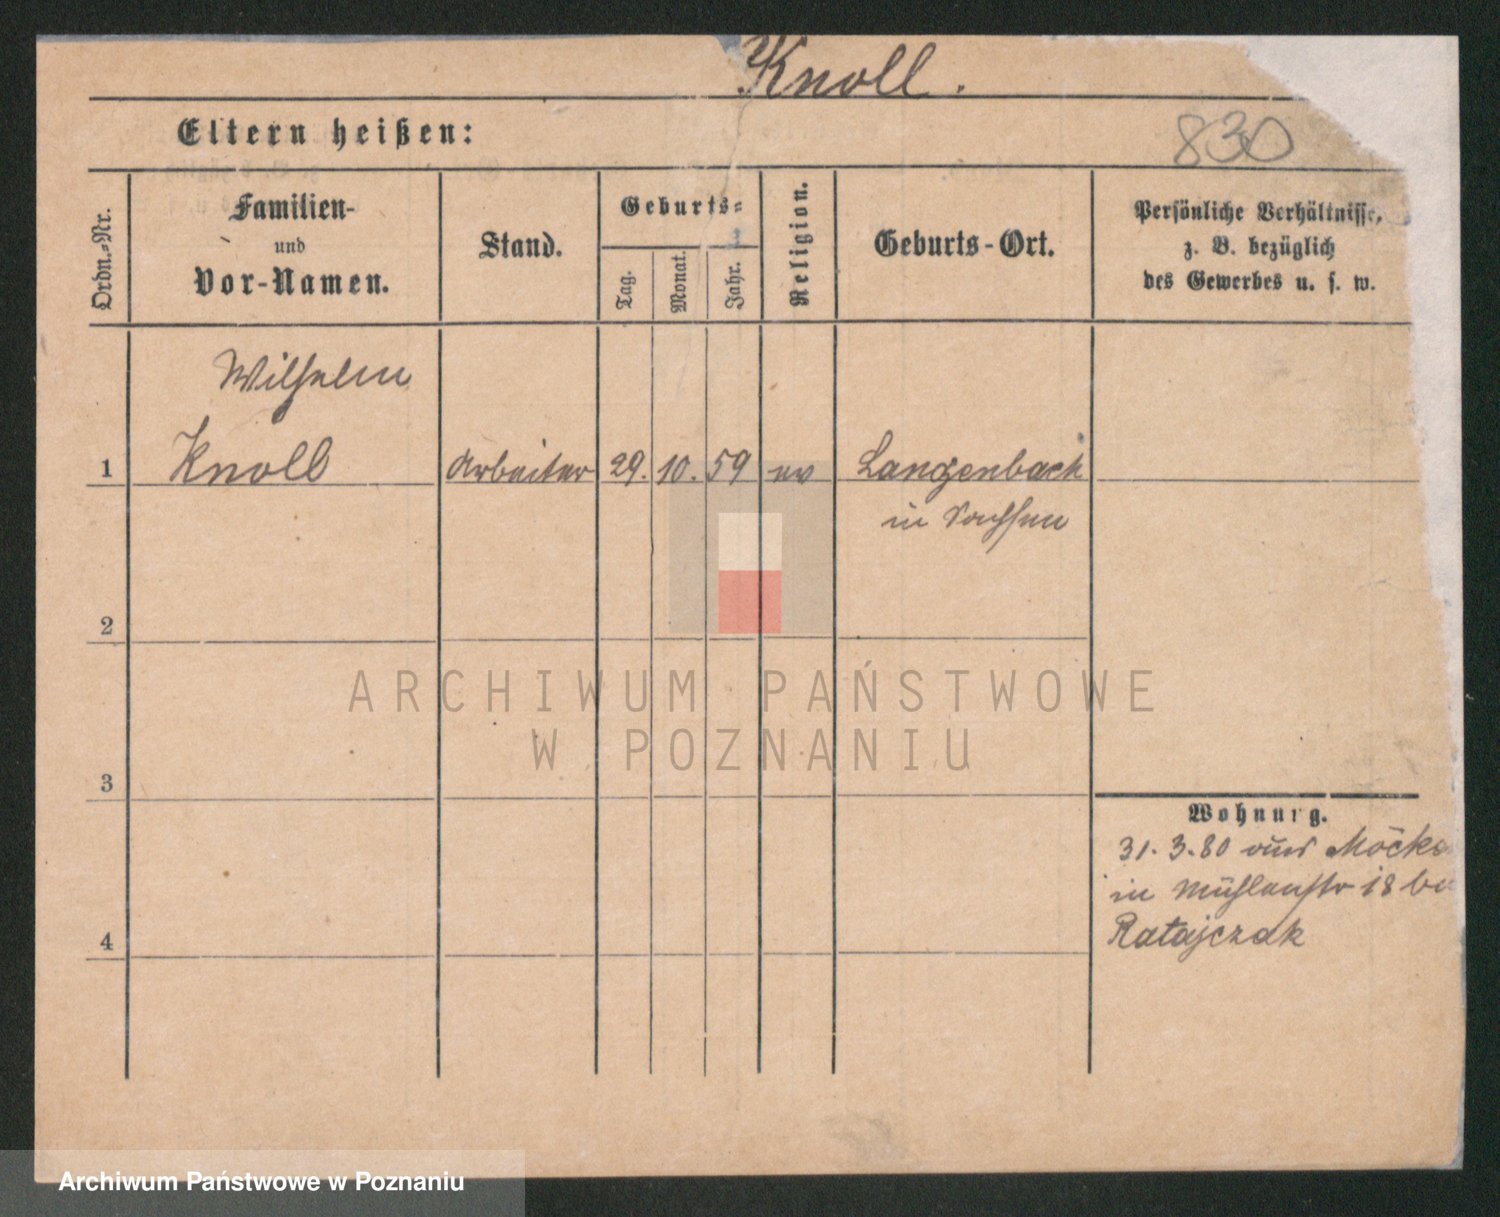 Knoll.
830
Eltern heißen:
Ordn.-Nr.
Familien-
und
Vor-Namen.
Stand.
Geburts-
Tag.
Monat.
Jahr.
Religion.
Geburts-Ort.
Persönliche Verhältnisse,
z. B. bezüglich
des Gewerbes u. s. w.
Wilhelm
1 Knoll Arbeiter 29. 10. 59 ev Langenbach
in Sachsen
2
3
4
Wohnung.
31. 3. 80 aus
in Mühlenstr 18 bei
Ratajczak
ARCHIWUM PAŃSTWOWE
W POZNANIU
Archiwum Państwowe w Poznaniu